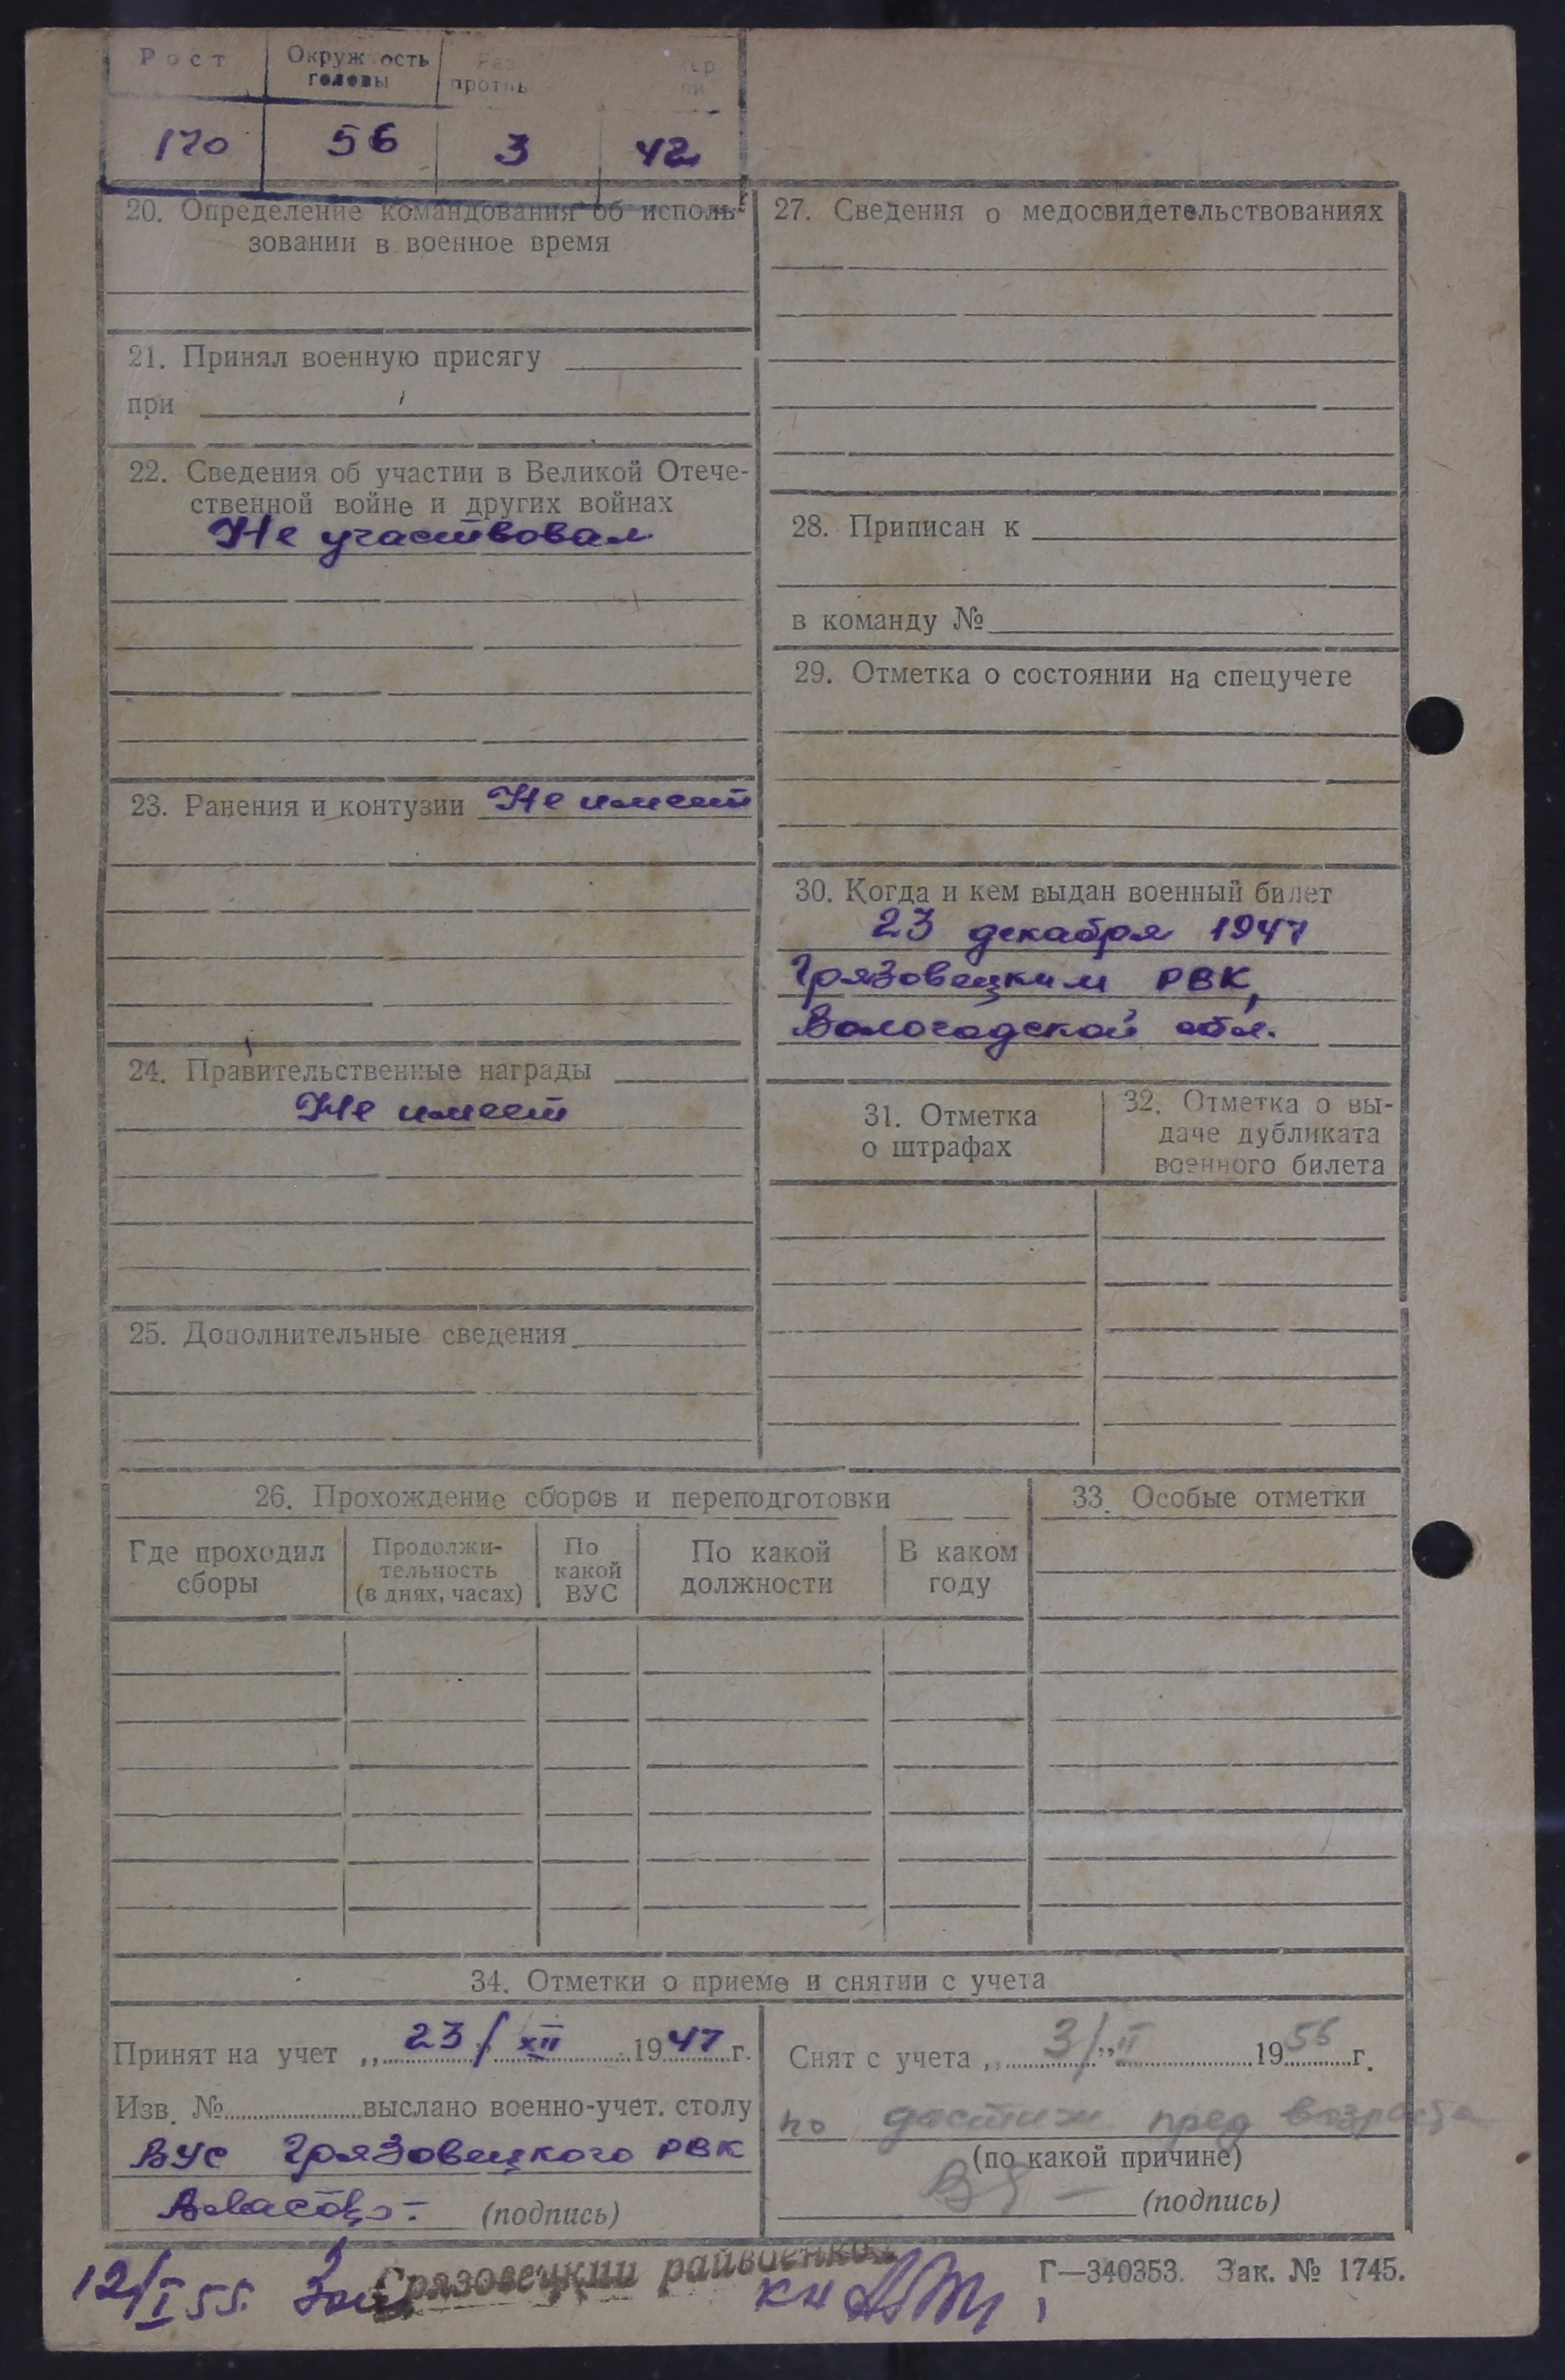 Рост
Окружность
головы
170 56 3 42
20. Определение командования об исполь-
зовании в военное время
21. Принял военную присягу
при
22. Сведения об участии в Великой Отече-
ственной войне и других войнах
Не участвовал
23. Ранения и контузии Не имеет
24. Правительственные награды
Не имеет
25. Дополнительные сведения
27. Сведения о медосвидетельствованиях
28. Приписан к
в команду №
29. Отметка о состоянии на спецучете
30. Когда и кем выдан военный билет
23 декабря 1947
Грязовецким РВК,
Вологодской обл.
31. Отметка
о штрафах
32. Отметка о вы-
даче дубликата
военного билета
26. Прохождение сборов и переподготовки
Где проходил
сборы
Продолжи-
тельность
(в днях, часах)
По
какой
ВУС
По какой
должности
В каком
году
33. Особые отметки
34. Отметки о приеме и снятии с учета
Принят на учет „ 23/XII 1947 г.
Изв. № выслано военно-учет. столу
ВУС Грязовецкого РВК
(подпись)
Снят с учета „ 3/" II 1956 г.
по достиж пред возраста
(по какой причине)
(подпись)
12/I 55.
Грязовецкий райвоенком
Г—340353. Зак. № 1745.